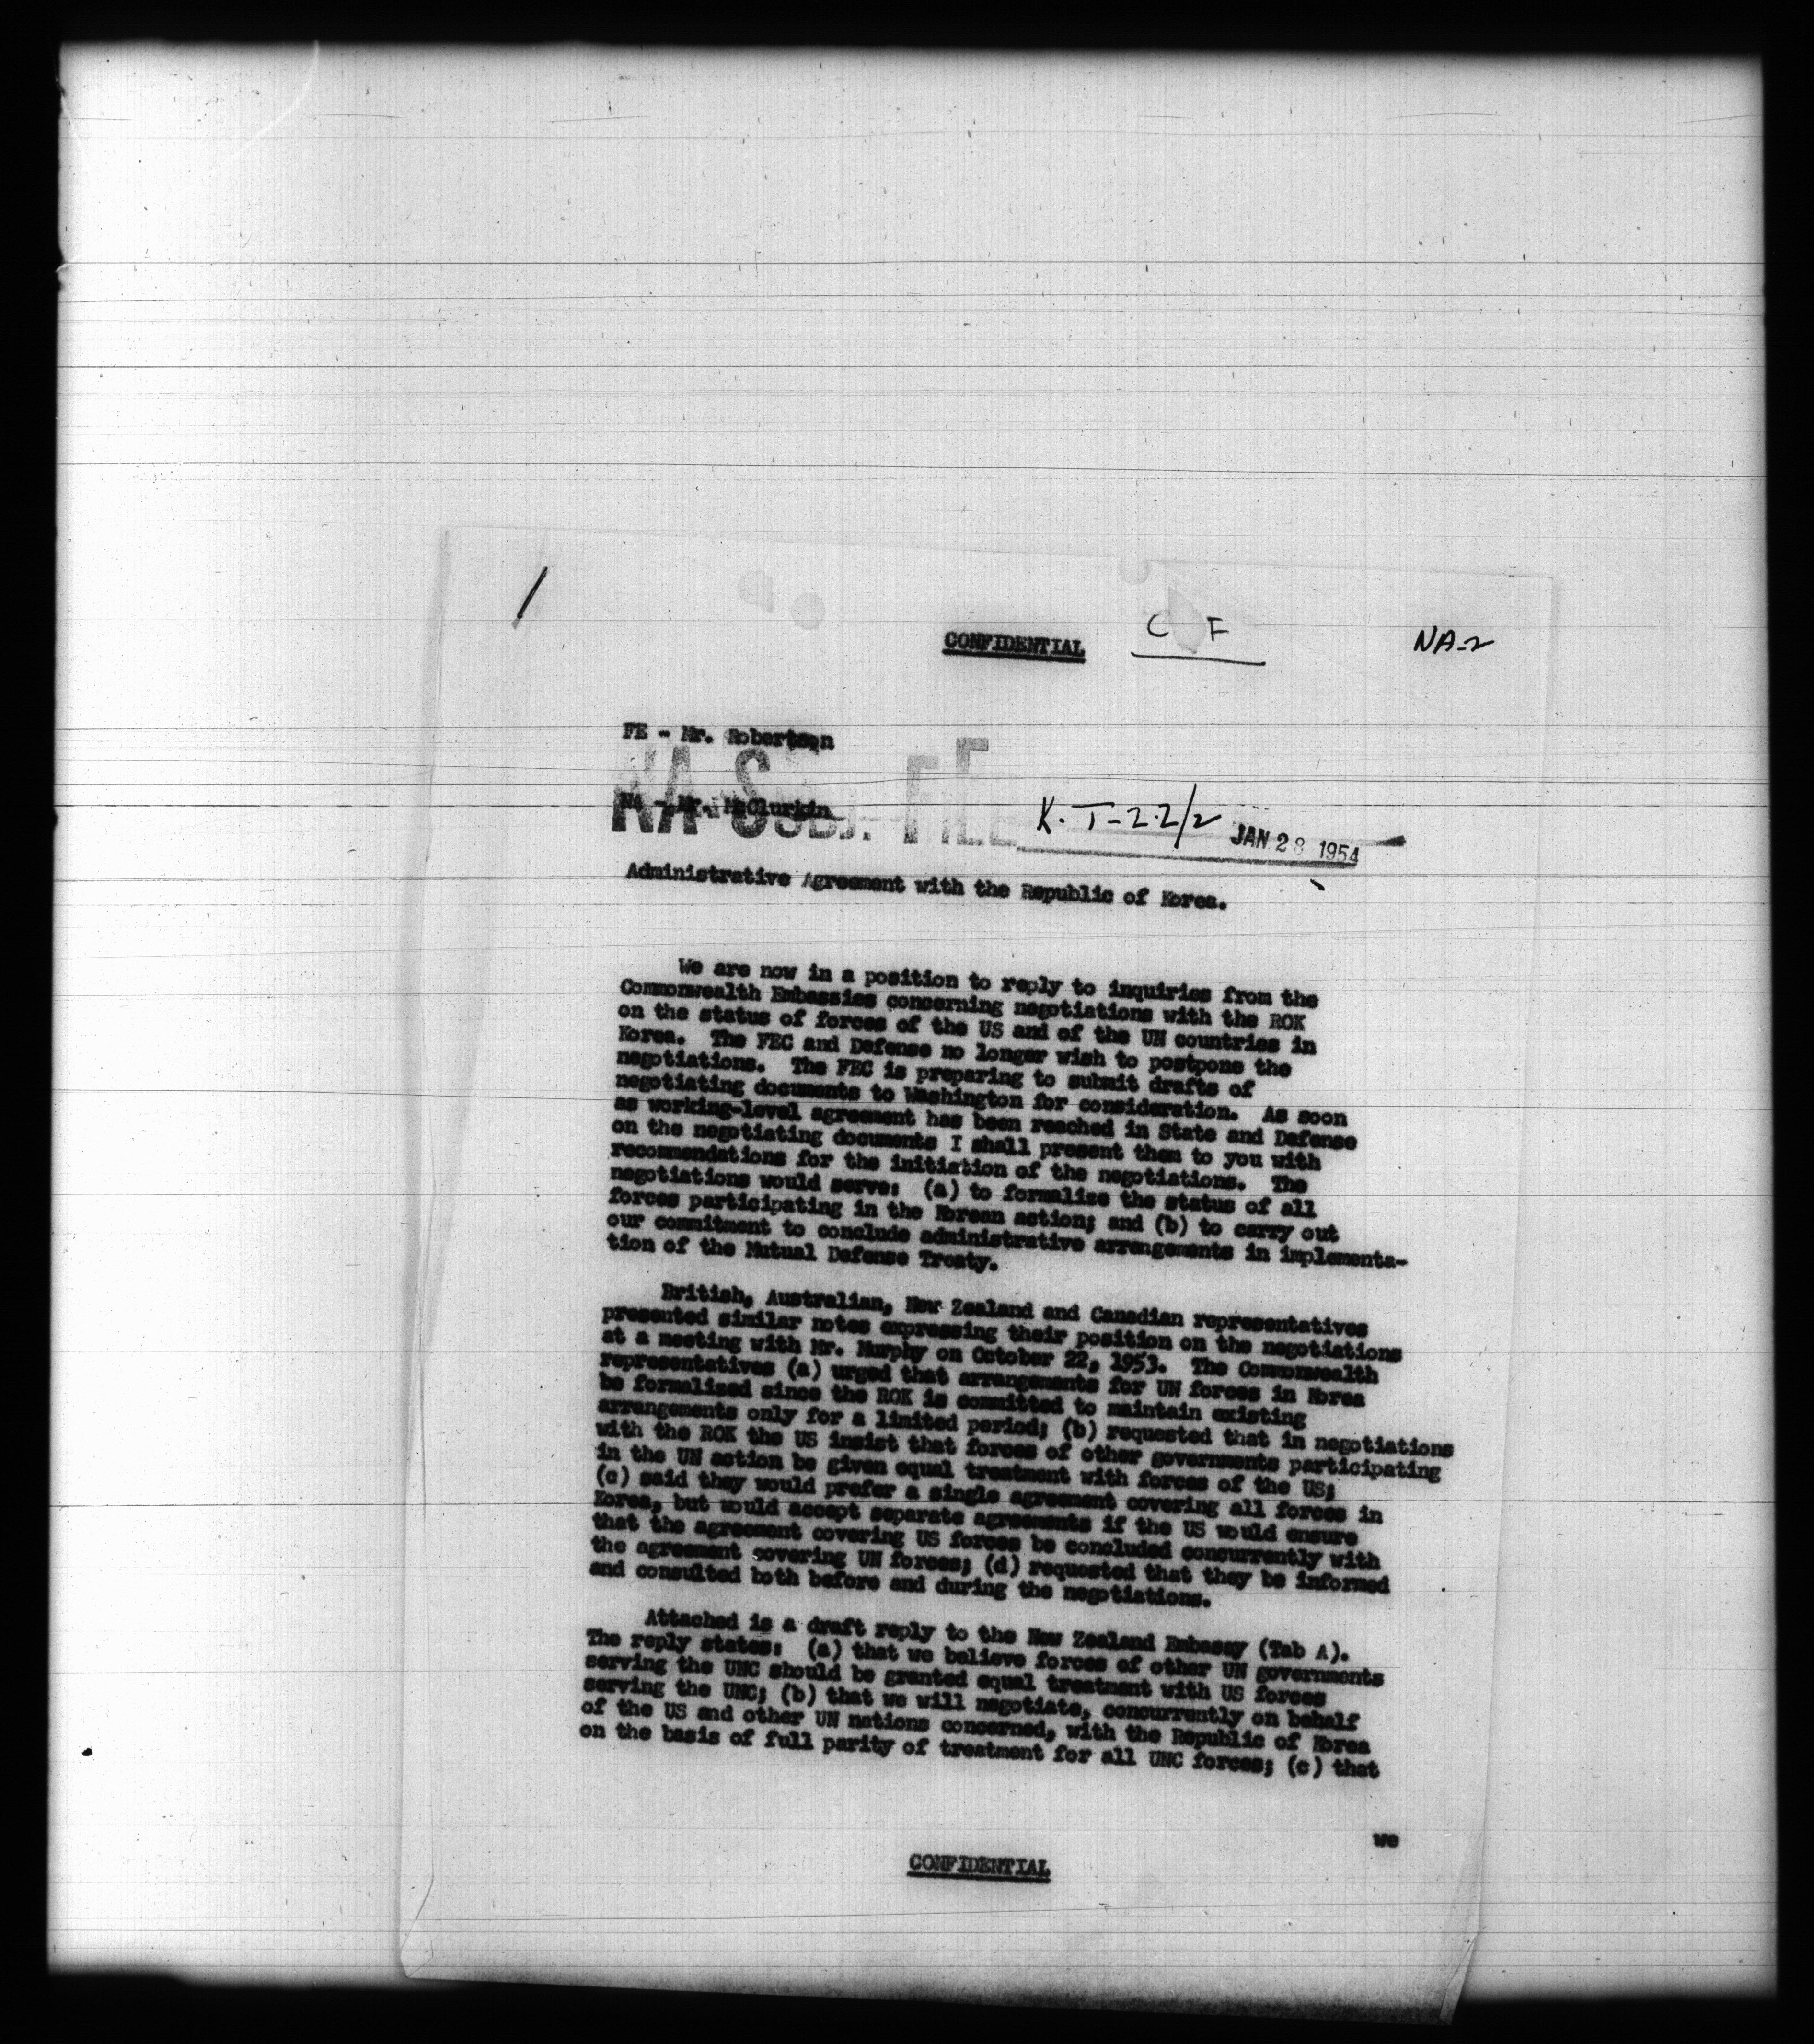 CONFIDENTIAL
C F
NA-2
FE - Mr. Robertson
NA - Mr. McClurkin
NA-SUBJ. FILE
K. T-2.2/2
JAN 28 1954
Administrative Agreement with the Republic of Korea.
We are now in a position to reply to inquiries from the
Commonwealth Embassies concerning negotiations with the ROK
on the status of forces of the US and of the UN countries in
Korea. The FEC and Defense no longer wish to postpone the
negotiations. The FEC is preparing to submit drafts of
negotiating documents to Washington for consideration. As soon
as working-level agreement has been reached in State and Defense
on the negotiating documents I shall present them to you with
recommendations for the initiation of the negotiations. The
negotiations would serve: (a) to formalize the status of all
forces participating in the Korean action; and (b) to carry out
our commitment to conclude administrative arrangements in implementa-
tion of the Mutual Defense Treaty.
British, Australian, New Zealand and Canadian representatives
presented similar notes expressing their position on the negotiations
at a meeting with Mr. Murphy on October 22, 1953. The Commonwealth
representatives (a) urged that arrangements for UN forces in Korea
be formalized since the ROK is committed to maintain existing
arrangements only for a limited period; (b) requested that in negotiations
with the ROK the US insist that forces of other governments participating
in the UN action be given equal treatment with forces of the US;
(c) said they would prefer a single agreement covering all forces in
Korea, but would accept separate agreements if the US would ensure
that the agreement covering US forces be concluded concurrently with
the agreement covering UN forces; (d) requested that they be informed
and consulted both before and during the negotiations.
Attached is a draft reply to the New Zealand Embassy (Tab A).
The reply states: (a) that we believe forces of other UN governments
serving the UNC should be granted equal treatment with US forces
serving the UNC; (b) that we will negotiate, concurrently on behalf
of the US and other UN nations concerned, with the Republic of Korea
on the basis of full parity of treatment for all UNC forces; (c) that
we
CONFIDENTIAL